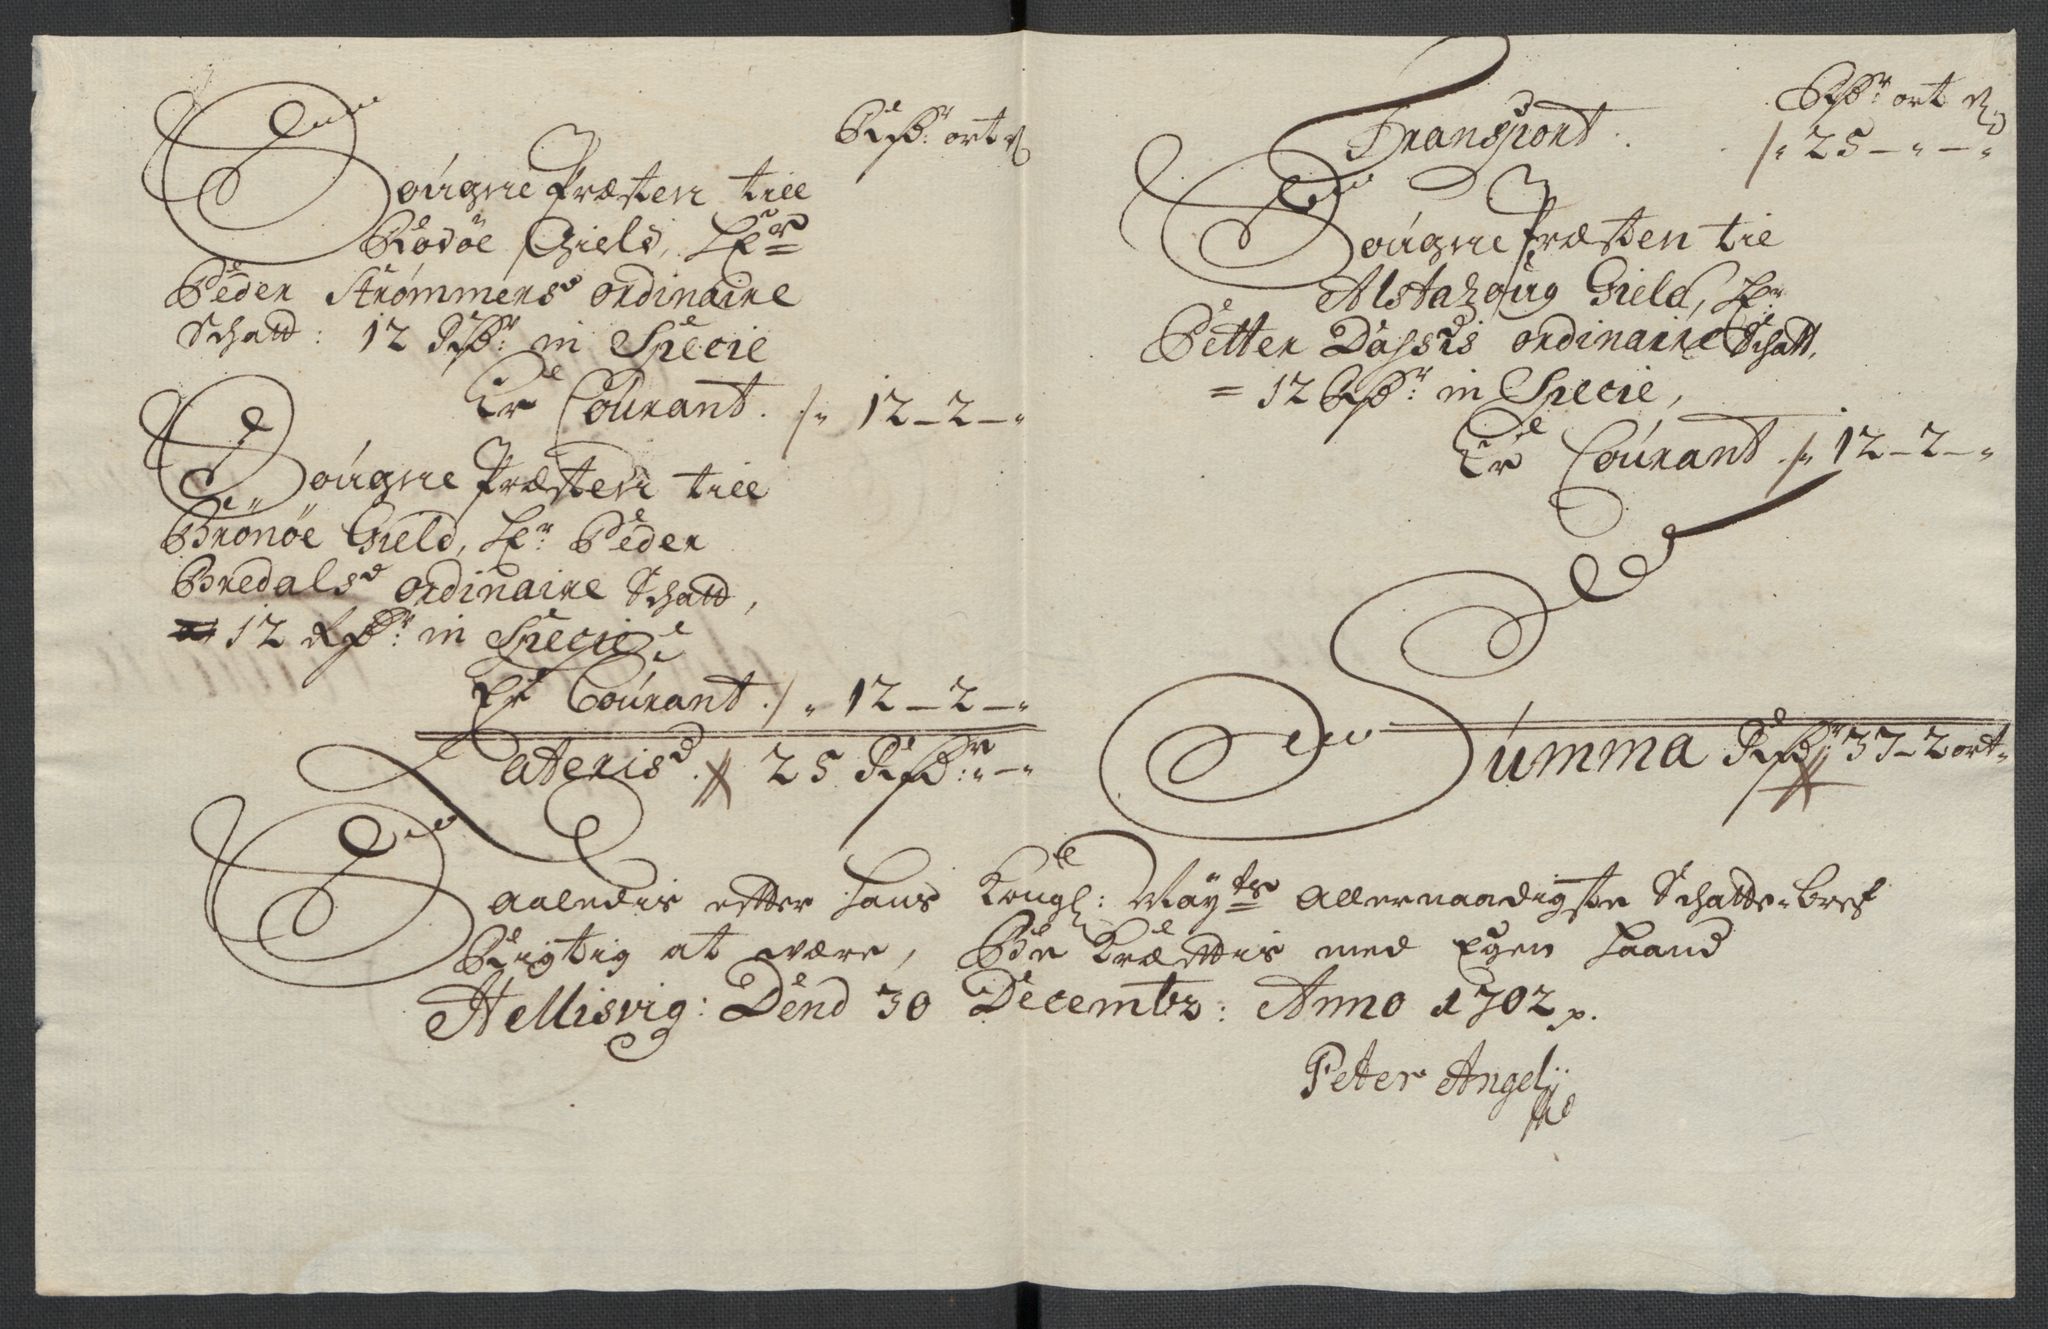 Rdr: ort s
Sougne Præsten till
Rødøe Gield, Hr
Peder Strømmens ordinaire
Schatt: 12 Rdr: in Specie
Er Courant. /" 12 – 2 – "
Sougne Præsten till
Brönöe Gield, Hr Peder
Bredals ordinaire Schatt,
12 Rdr: in Specie
Er Courant. /" 12 – 2 – "
Lateris. 25 Rdr: " – "
Rdr: ort s
Transport. /" 25 – " – "
Sougne Præsten til
Alstahoug Gield, Hr
Petter Dasses ordinaire Schatt,
= 12 Rdr: in Specie,
Er Courant /" 12 – 2 – "
Summa Rdr 37 – 2 ort –
Saaledis efter Hans Kongl: Mayts Allernaadigste Schatte-bref
Rigtig at være, Bekræftis med Egen Haand
Hellisvig: Dend 30 Decembr: Anno 1702 p.
Peter Angelj